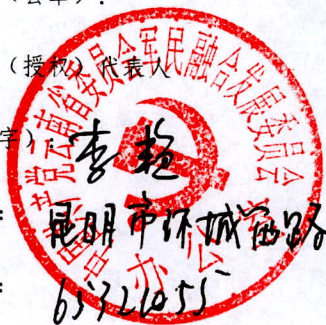 （公章）：
（授权）代表人
字）：李艳
：昆明市环城西路
：65321055
中国共产党云南省委员会军民融合发展委员会
办公室